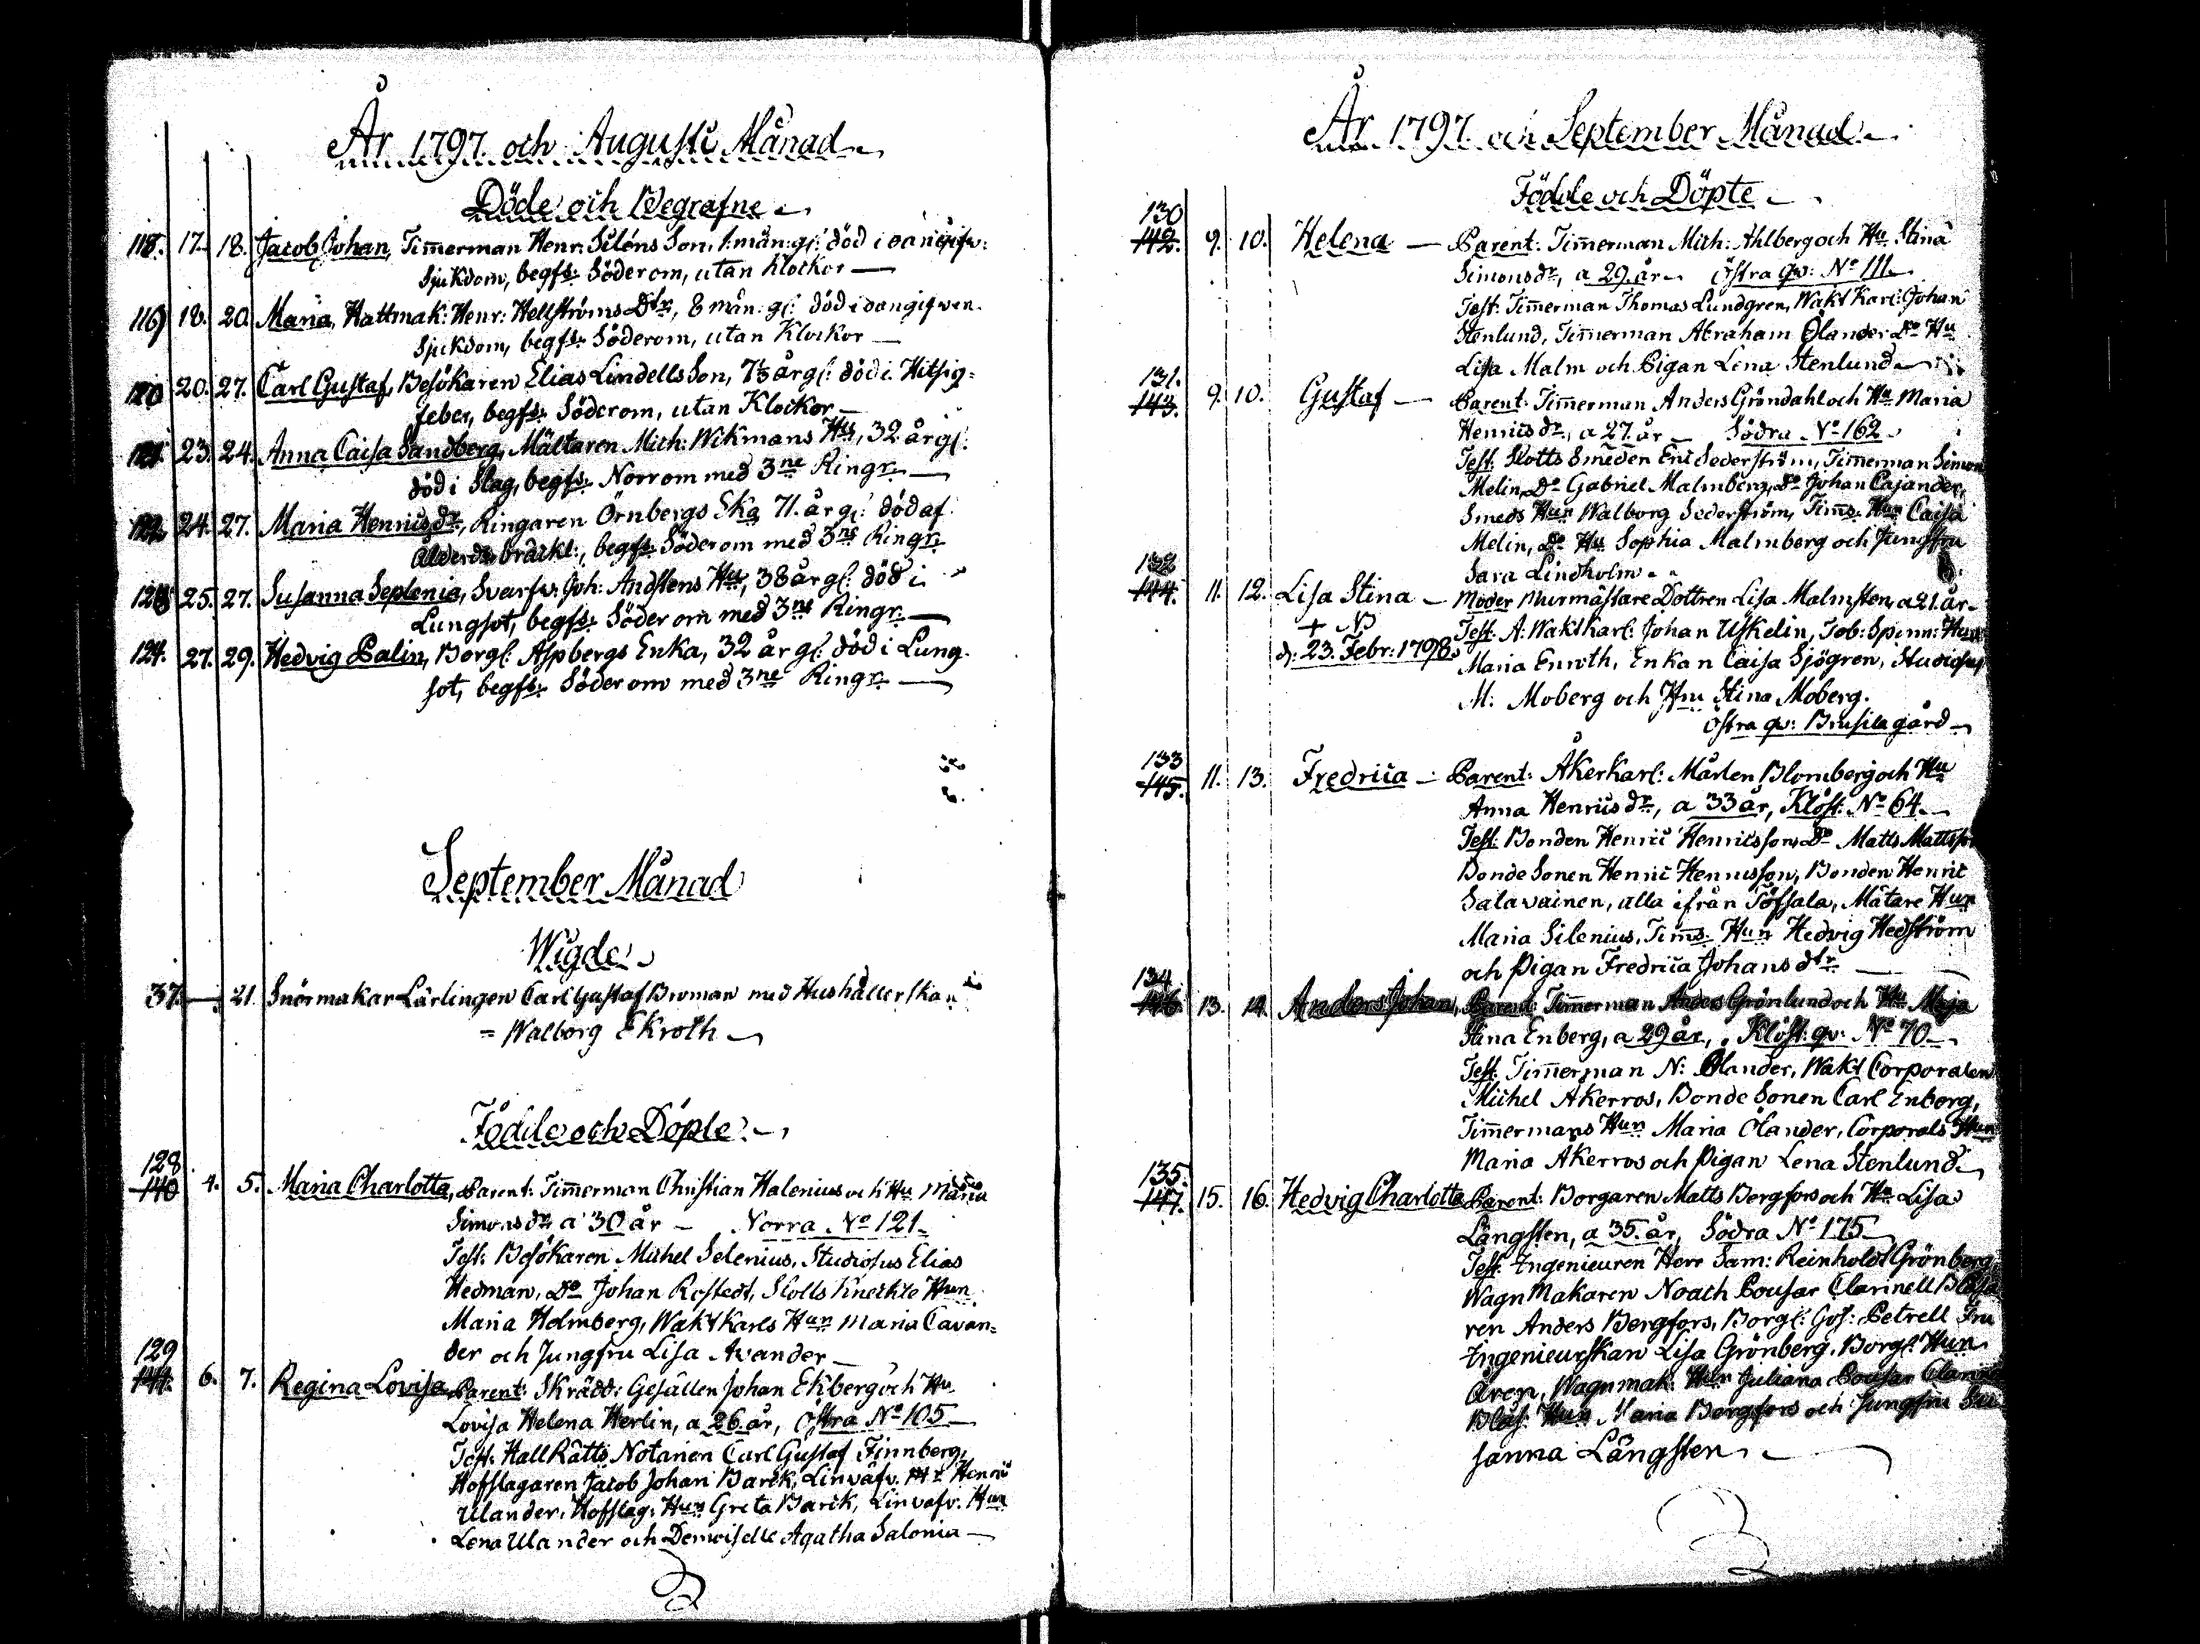 År 1797 och Augusti Månad
Döde och Begrafne
118. 17. 18. Jacob Johan, Timmerman Henr: Siléns Son, 1. mån: gl: död i oangifv:
Sjukdom, begfs: Söder om, utan Klockor
119 18. 20. Maria, Hattmak: Henr: Hellströms Dtr, 8 mån: gl: död i oangifven
Sjukdom, begfs: Söder om, utan Klockor
120 20. 27. Carl Gustaf, Besökaren Elias Lindells Son, 7 1/3 år gl: död i Hitsig=
feber, begfs: Söder om, utan Klockor
121 23. 24. Anna Caisa Sandberg, Mältaren Mich: Wikmans Hu, 32 år gl:
död i Slag, begfs: Norr om med 3ne Ringr.
122 24. 27. Maria Henricsdr, Ringaren Örnbergs Eka, 71. år gl: död af
Ålderds bräckl:, begfs: Söder om med 3ne Ringr.
123 25. 27. Susanna Seplenia, Svarfv. Joh: Andstens Hu, 38 år gl: död i
Lungsot, begfs: Söder om med 3ne Ringr.
124. 27. 29. Hedvig Palin, Borgl: Aspbergs Enka, 32 år gl: död i Lung
sot, begfs: Söder om med 3ne Ringr.
September Månad
Wigde
37. 21. Snörmakar Lärlingen Carl Gustaf Broman med Hushållerskan
= Walborg Ekroth
Födde och Döpte
128
140 4. 5. Maria Charlotta, Parent: Timmerman Christian Halenius och Hu Maria
Simonsdr a 30 år Norra No 121
Test: Besökaren Michel Selenius, Studiosus Elias
Hedman, Do Johan Rostedt, Slotts Knechts Hun
Maria Holmberg, Wakt Karls Hun Maria Cavan=
der och Jungfru Lisa Avander
129
141. 6. 7. Regina Lovisa Parent: Skrädd: Gesällen Johan Ekberg och Hu
Lovisa Helena Herlin, a 26. år, Östra No 105
Test: Hall Rätts Notarien Carl Gustaf Finnberg,
Hofslagaren Jacob Johan Barck, Linväfv. Mr Henric
Ulander, Hofslag: Hun Greta Barck, Linväfv: Hun
Lena Ulander och Demoiselle Agatha Salonia
År 1797. och September Månad
Födde och Döpte
130
142. 9. 10. Helena — Parent: Timmerman Mich: Ahlberg och Hu Stina
Simonsdr, a 29. år Östra qv: No 111.
Test: Timmerman Thomas Lundgren, Wakt Karl: Johan
Stenlund, Timmerman Abraham Ölander Do Hu
Lisa Malm och Pigan Lena Stenlund
131.
143. 9. 10. Gustaf — Parent: Timmerman Anders Gröndahl och Hu Maria
Henricsdr, a 27. år Södra No 162
Test: Slotts Smeden Eric Sederström, Timmerman Simon
Melin, Do Gabriel Malmberg, Do Johan Cajander,
Smeds Hun Walborg Sederström, Tims Hun Caisa
Melin, Do Hu Sophia Malmberg och Jungfru
Sara Lindholm.
132
144. 11. 12. Lisa Stina — Moder Murmästare Dottren Lisa Malmsten, a 21. år
+ d: 23. Febr: 1798. Test: A: Wakt Karl: Johan Uskelin, Tob: Spinn: Hun
Maria Enroth, Enkan Caisa Sjögren, Studiosus
M: Moberg och Hu Stina Moberg.
Östra qv: Brusila gård
133
145. 11. 13. Fredrica — Parent: Åkerkarl: Mårten Blomberg och Hu
Anna Henricsdr, a 33 år, Klöst: No 64.
Test: Bonden Henric Henricsson, Do Matts Mattsson
Bonde Sonen Henric Henricsson, Bonden Henric
Salavainen, alla ifrån Töfsala, Mätare Hun
Maria Silenius, Tims Hun Hedvig Hedström
och Pigan Fredrica Johansdtr
134.
146. 13. 14. Anders Johan, Parent: Timmerman Anders Grönlund och Hu Maja
Stina Enberg, a 29 år, Klöst: qv: No 70
Test: Timmerman N: Ölander, Wakt Corporalen
Michel Åkerros, Bonde Sonen Carl Enberg,
Timmermans Hun Maria Ölander, Corporals Hun
Maria Åkerros och Pigan Lena Stenlund
135.
147. 15. 16. Hedvig Charlotta Parent: Borgaren Matts Bergfors och Hu Lisa
Långsten, a 35. år, Södra No 175
Test: Ingenieuren Herr Sam: Reinholdt Grönberg,
Wagn Makaren Noach Pousar Clarinett Blåsa
ren Anders Bergfors, Borgl: Gos: Petrell Fru
Ingenieurskan Lisa Grönberg, Borgl: Hun
Aren, Wagnmak: Hun Juliana Pousar Clarinet
Blås: Hun Maria Bergfors och Jungfru Su
sanna Långsten